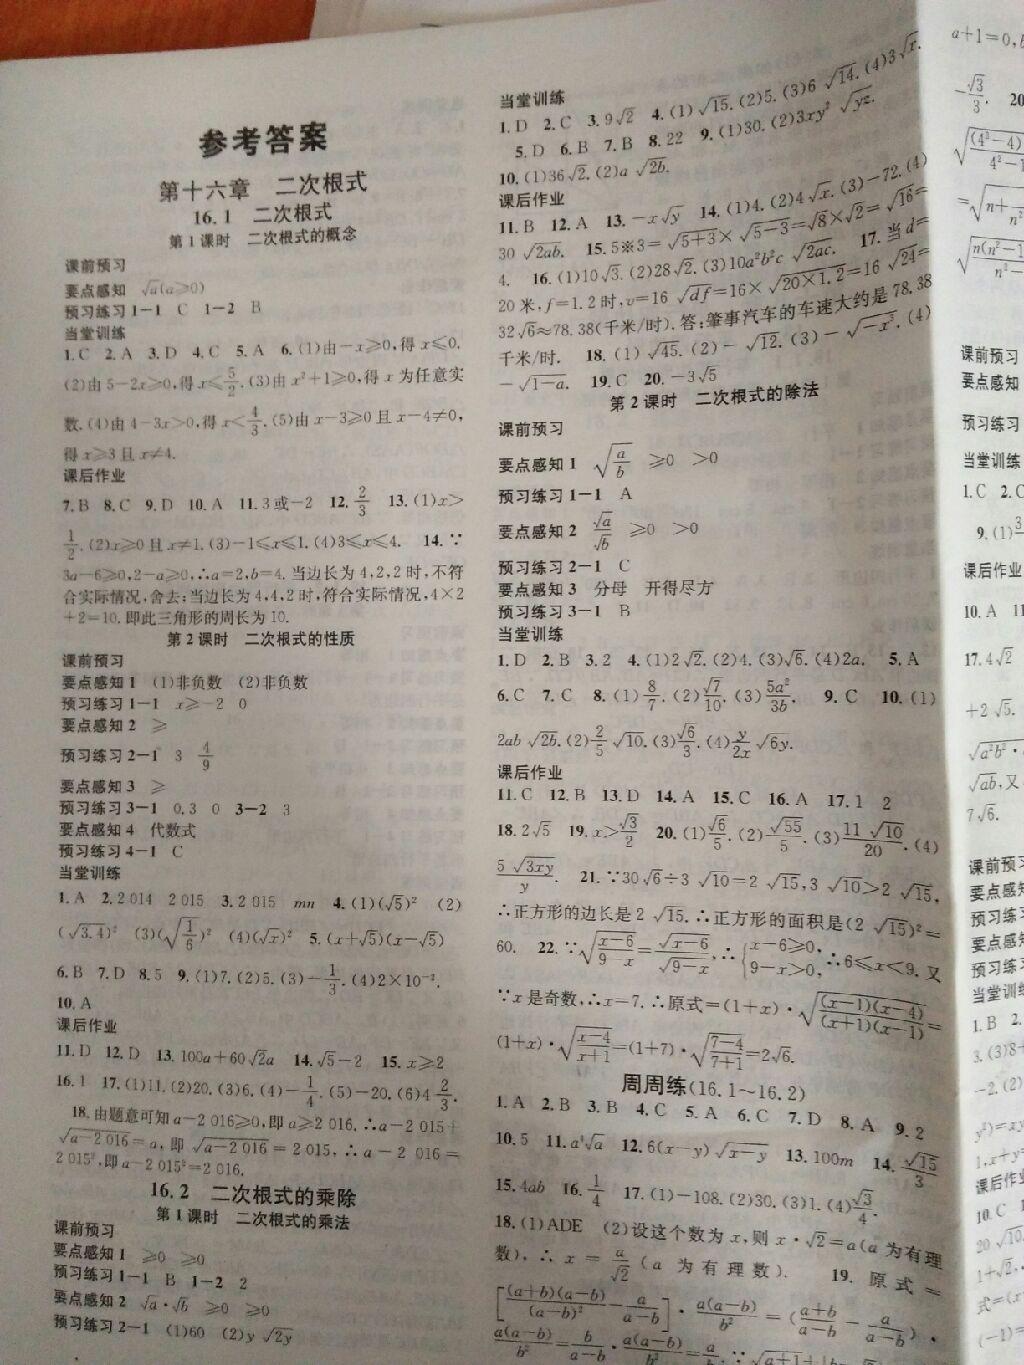 参考答案
第十六章 二次根式
16.1 二次根式
第1课时 二次根式的概念
课前预习
要点感知 √a(a≥0)
预习练习1-1 C 1-2 B
当堂训练
1.C 2.A 3.D 4.C 5.A 6.(1)由-x≥0,得x≤0.
(2)由5-2x≥0,得x≤5/2.(3)由x²+1≥0,得x为任意实
数.(4)由4-3x>0,得x<4/3.(5)由x-3≥0且x-4≠0,
得x≥3且x≠4.
课后作业
7.B 8.C 9.D 10.A 11.3或-2 12.2/3 13.(1)x>
1/2.(2)x≥0且x≠1.(3)-1≤x≤1.(4)3≤x≤4. 14.∵
3a-6≥0,2-a≥0,∴a=2,b=4.当边长为4,2,2时,不符
合实际情况,舍去;当边长为4,4,2时,符合实际情况,4×2
+2=10.即此三角形的周长为10.
第2课时 二次根式的性质
课前预习
要点感知1 (1)非负数 (2)非负数
预习练习1-1 x≥-2 0
要点感知2 ≥
预习练习2-1 3 4/9
要点感知3 ≥
预习练习3-1 0.3 0 3-2 3
要点感知4 代数式
预习练习4-1 C
当堂训练
1.A 2.2 014 2 015 3.2 015 mn 4.(1)(√5)² (2)
(√3.4)² (3)(√(1/6))² (4)(√x)² 5.(x+√5)(x-√5)
6.B 7.D 8.5 9.(1)7.(2)5.(3)-1/3.(4)2×10⁻².
10.A
课后作业
11.D 12.D 13.100a+60√2a 14.√5-2 15.x≥2
16.1 17.(1)11.(2)20.(3)6.(4)-1/4.(5)-20.(6)4 2/3.
18.由题意可知a-2 016≥0,即a≥2 016.∴a-2 015+
√(a-2 016)=a,即√(a-2 016)=2 015,∴a-2 016=
2 015²,即a-2 015²=2 016.
16.2 二次根式的乘除
第1课时 二次根式的乘法
课前预习
要点感知1 ≥0 ≥0
预习练习1-1 B 1-2 2
要点感知2 √a·√b ≥0 ≥0
预习练习2-1 (1)60 (2)y√(2y)
当堂训练
1.D 2.C 3.9√2 4.(1)√15.(2)5.(3)6√14.(4)3√x.
5.D 6.B 7.B 8.22 9.(1)30.(2)3xy²√(yz).
10.(1)36√2.(2)a√(2b).
课后作业
11.B 12.A 13.-x√y 14.(1)4.(2)4√x.(3)-72.(4)
30√(2ab). 15.5※3=√(5+3)×√(5-3)=√8×√2=√16=
4. 16.(1)10√3.(2)28√2.(3)10a²b²c√(2ac). 17.当d=
20米,f=1.2时,v=16√(df)=16×√(20×1.2)=16√24=
32√6≈78.38(千米/时).答:肇事汽车的车速大约是78.38
千米/时. 18.(1)√45.(2)-√12.(3)-√(-x³).(4)
-√(1-a). 19.C 20.-3√5
第2课时 二次根式的除法
课前预习
要点感知1 √(a/b) ≥0 >0
预习练习1-1 A
要点感知2 √a/√b ≥0 >0
预习练习2-1 C
要点感知3 分母 开得尽方
预习练习3-1 B
当堂训练
1.D 2.B 3.2 4.(1)2√2.(2)4.(3)√6.(4)2a. 5.A
6.C 7.C 8.(1)8/7.(2)√7/10.(3)5a²/3b. 9.C 10.(1)
2ab√(2b).(2)2/5√10.(3)√6/3.(4)y/2x√(6y).
课后作业
11.C 12.B 13.D 14.A 15.C 16.A 17.1 2
18.2√5 19.x>√3/2 20.(1)√6/5.(2)-√55/5.(3)11√10/20.(4)
5√(3xy)/y. 21.∵30√6÷3√10=2√15,3√10>2√15,
∴正方形的边长是2√15.∴正方形的面积是(2√15)²=
60. 22.∵√((x-6)/(9-x))=√(x-6)/√(9-x),∴{x-6≥0, 9-x>0,∴6≤x<9.又
∵x是奇数,∴x=7.∴原式=(1+x)·√((x-1)(x-4)/(x+1)(x-1))=
(1+x)·√((x-4)/(x+1))=(1+7)·√((7-4)/(7+1))=2√6.
周周练(16.1~16.2)
1.A 2.B 3.B 4.C 5.A 6.C 7.D 8.A 9.2
10.5 11.a⁴√a 12.6(x-y)√(x-y) 13.100m 14.√15/3
15.4ab 16.1/4 17.(1)-108.(2)30.(3)1.(4)√3/4.
18.(1)ADE (2)设这个数为x,则x·√2=a(a为有理
数),∴x=a/√2(a为有理数). 19.原式=
[(a+b)(a-b)/(a-b)²-a/(a-b)]·a(a-b)/b²=((a+b)/(a-b)-a/(a-b))·
a(a-b)/b²=b/(a-b)·a(a-b)/b²
a+1=0,
-√3/3. 20
课前预习
要点感知
预习练习
当堂训练
1.C 2.C
9.(1)
课后作业
10.A
17.4√2
+2√5.
√ab,又
7√6.
课前预习
要点感知
预习练习
要点感知
预习练习
当堂训练
1.B 2.
3.(3)8+
-2.(2)
课后作业
10.C
20√10.
(-1)=